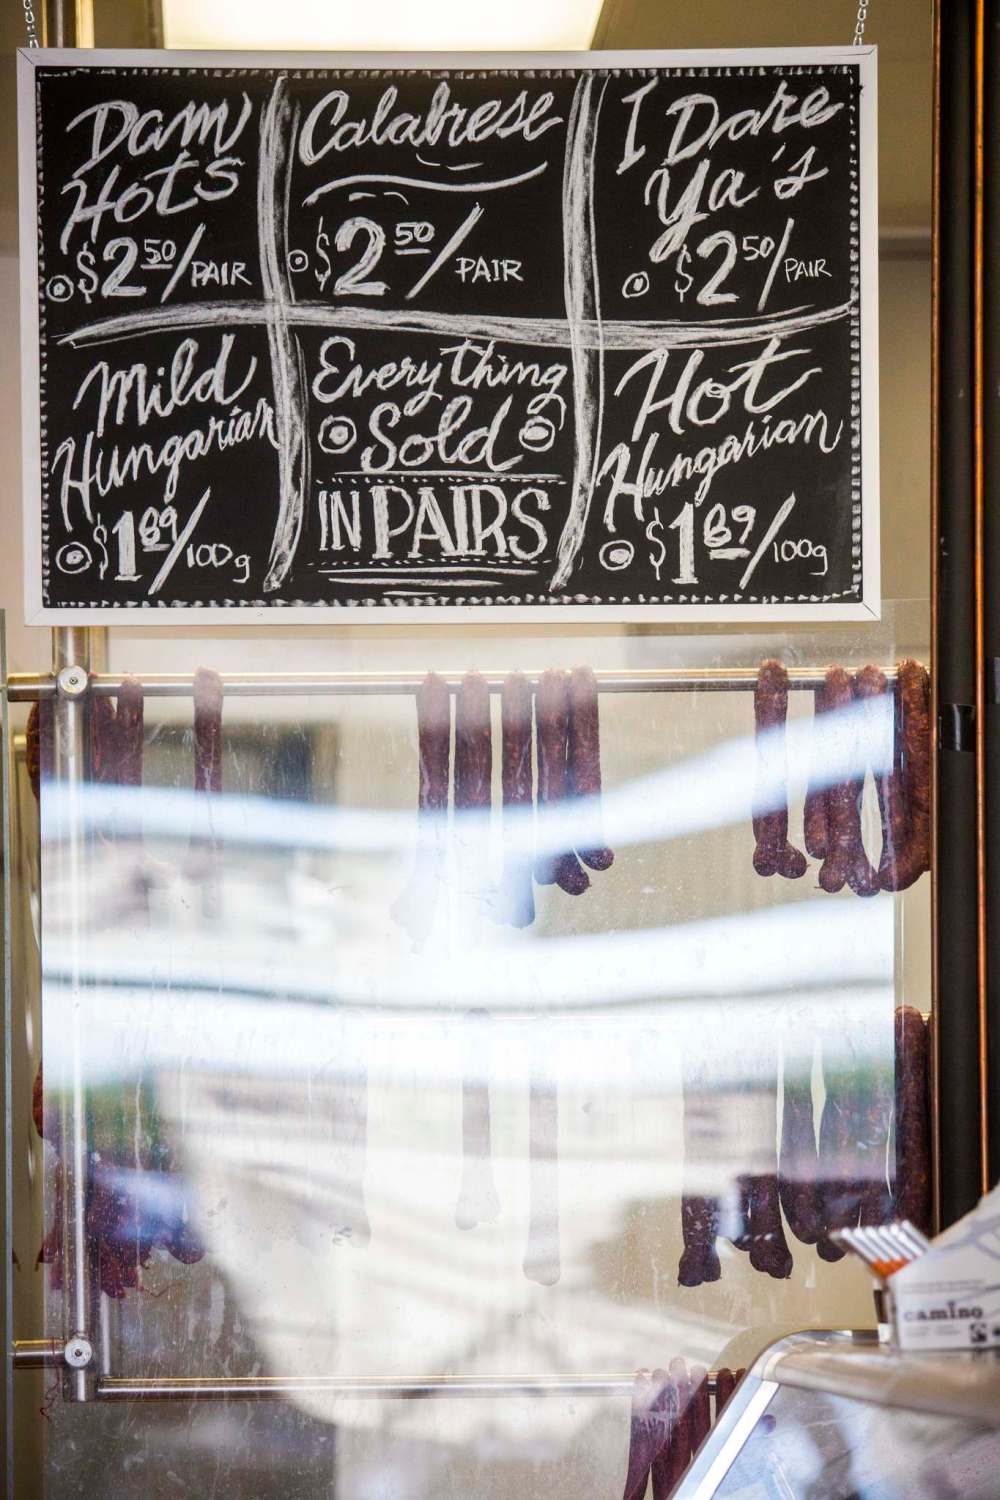 Dam
Hots
$2.50/PAIR
Calabrese
$2.50/PAIR
I Dare
Ya's
$2.50/PAIR
Mild
Hungarian
$1.89/100g
Everything
Sold
IN PAIRS
Hot
Hungarian
$1.89/100g
camino